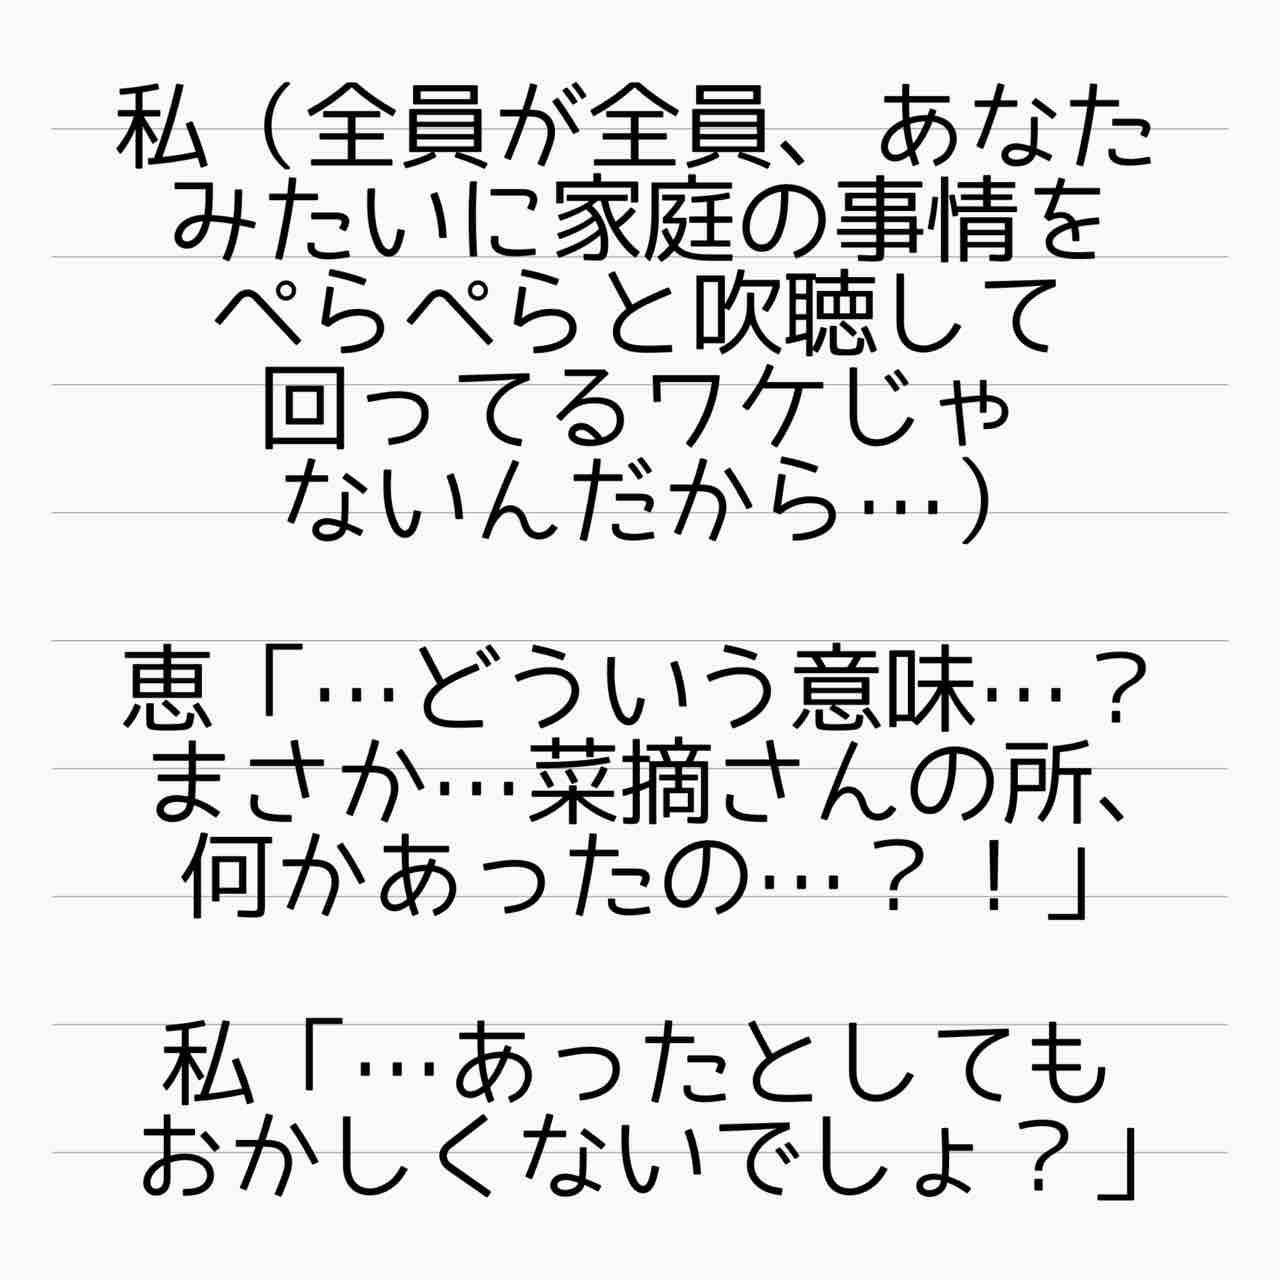 私（全員が全員、あなた
みたいに家庭の事情を
ぺらぺらと吹聴して
回ってるワケじゃ
ないんだから…）
恵「…どういう意味…？
まさか…菜摘さんの所、
何かあったの…？！」
私「…あったとしても
おかしくないでしょ？」